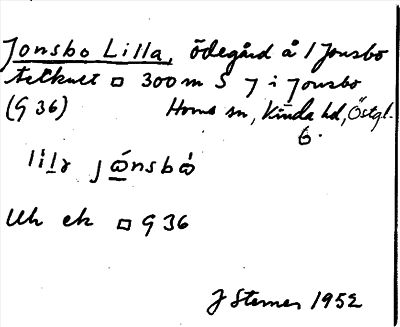 Jonsbo Lilla, ödegård å 1 Jonsbo
tecknet □ 300 m S J i Jonsbo
(9 36) Horns sn, Kinda hd, Östgl.
6.
Uk ek □ 9 36
J Sterner 1952